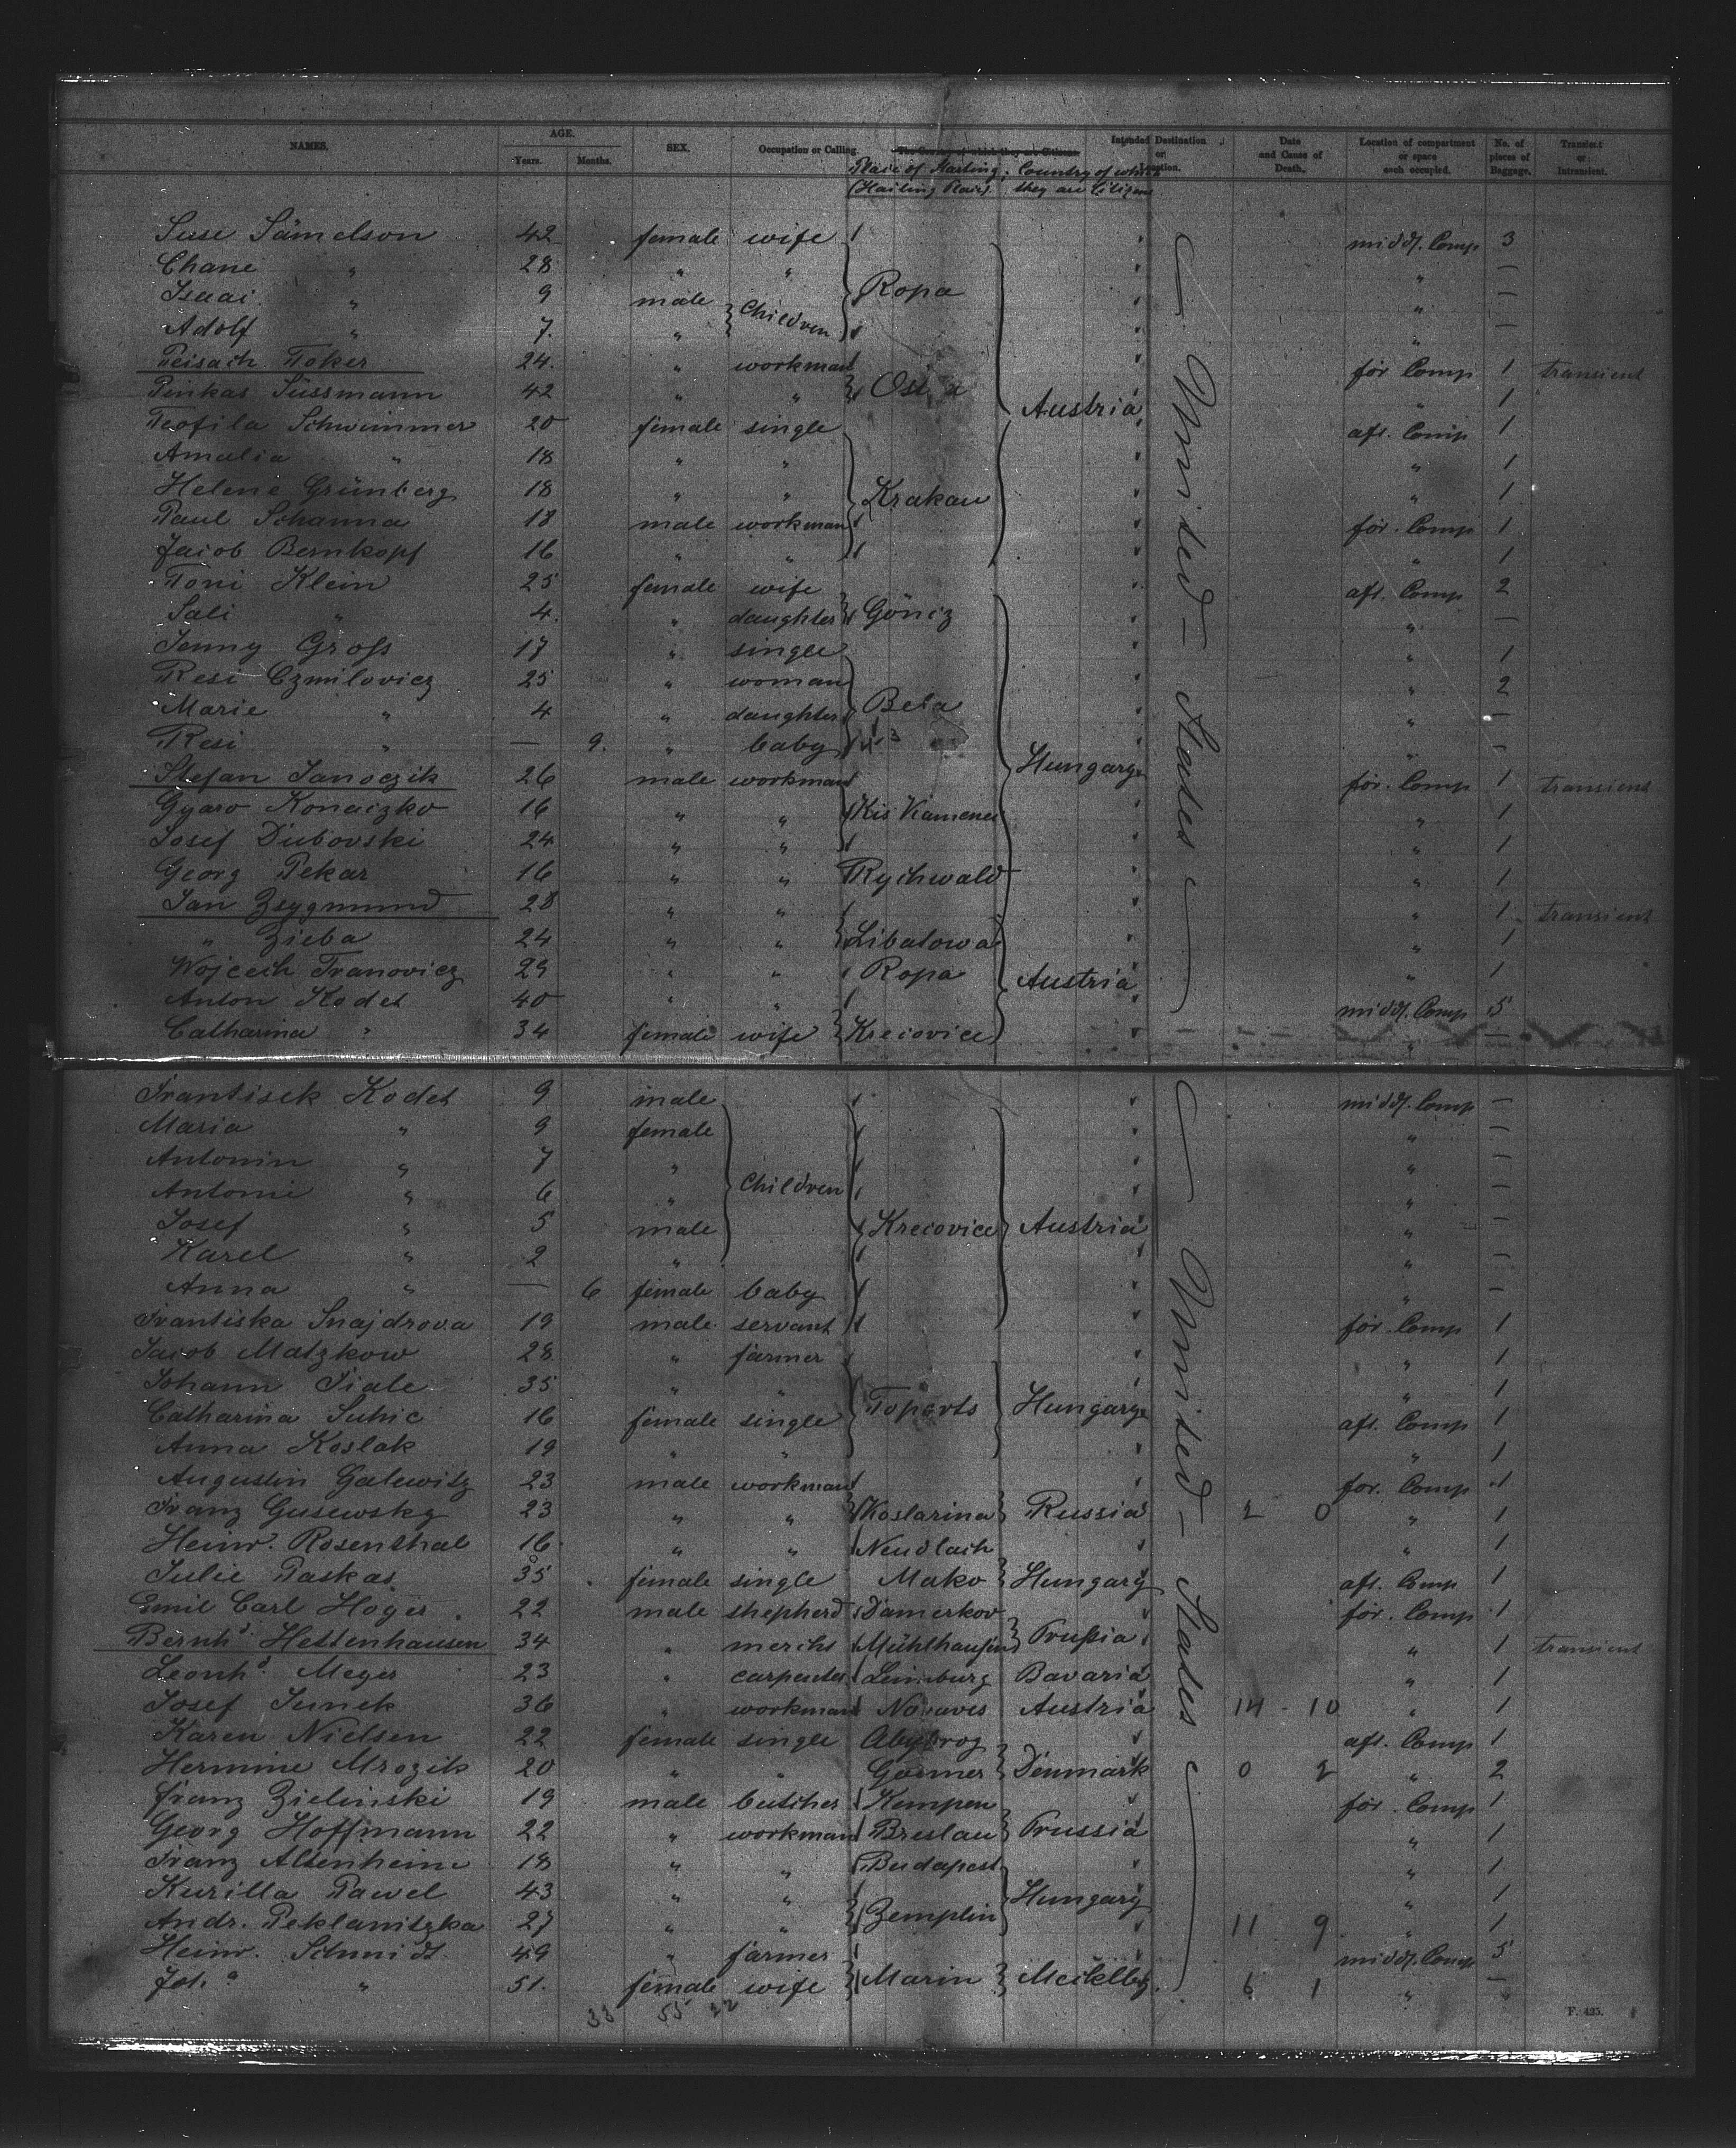 NAMES. AGE. SEX. Occupation or Calling. The Country of which they are Citizens Intended Destination or Location. Date and Cause of Death. Location of compartment or space each occupied. No. of pieces of Baggage. Transient or Intransient.
Years. Months. Place of Starting (Hailing Place). Country of which they are Citizens
Suse Sämelson 42 female wife middl. Comp 3
Chane " 28 " " " —
Isaai " 9 male Children Ropa " —
Adolf " 7. " " —
Peisach Toker 24. " workman för Comp 1 transient
Pinkas Süssmann 42 " " Austria " 1
Teofila Schwimmer 20 female single aft. Comp 1
Amalia " 18 " " " 1
Helene Grünberg 18 " " Krakau " 1
Paul Schanna 18 male workman för. Comp 1
Jacob Bernkopf 16 " " " 1
Toni Klein 25 female wife aft. Comp 2
Sali " 4. " daughter Göncz " —
Jenny Groß 17 " single " 1
Resi Czmilovicz 25 " woman " 2
Marie " 4 " daughter Bela " —
Resi " — 9. " baby " —
Stefan Janoczik 26 male workman Hungary för. Comp 1 transient
Gyuro Konaczko 16 " " Kis Kamenec " 1
Josef Dubovski 24 " " " 1
Georg Pekar 16 " " Rychwald " 1
Jan Zsygmund 28 " " " 1 transient
" Zieba 24 " " Libatowa " 1
Wojcech Tranovicz 29 " " Ropa Austria " 1
Anton Kodet 40 " " middl. Comp 5
Catharina " 34 female wife Krecovice " —
United States
Frantisek Kodet 9 male middl. Comp —
Maria " 9 female " —
Antonin " 7 " " —
Antonie " 6 " Children " —
Josef " 5 male Krecovice Austria " —
Karel " 2 " " —
Anna " — 6 female baby " —
Frantiska Snajdrova 19 male servant för. Comp 1
Jacob Matzkow 28 " farmer " 1
Johann Fiale 35 " " " 1
Catharina Suhic 16 female single Toports Hungary aft. Comp 1
Anna Koslak 19 " " " 1
Augustin Galewitz 23 male workman för. Comp 1
Franz Gusewsky 23 " " Koslarina Russia 2 0 " 1
Heinr. Rosenthal 16 " " Neudlach " 1
Julie Paskas 35 female single Mako Hungary aft. Comp 1
Emil Carl Höger 22 male shepherd Damerkov för. Comp 1
Bernhd. Hettenhausen 34 " mercht Mühlhausen Prußia " 1 transient
Leonhd. Meyer 23 " carpenter Leimburg Bavaria " 1
Josef Junek 36 " workman Austria 14 - 10 " 1
Karen Nielsen 22 female single Abybrog aft. Comp 1
Hermine Mrozik 20 " " Denmark 0 2 " 2
Franz Zielinski 19 male butcher Kempen för. Comp 1
Georg Hoffmann 22 " workman Breslau Prussia " 1
Franz Altenheim 18 " " Budapest " 1
Kurilla Pawel 43 " " Hungary " 1
Andr. Peklanitzka 27 " " Zemplin 11 9 " 1
Heinr. Schmidt 49 " farmer middl. Comp 5
Joh.a " 51. female wife Marin Mecklbg. 6 1 " —
United States
33 55 32
F. 425.